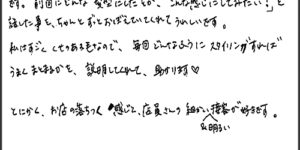 す。前回にどんな髪型にしたとか、こんな感じにしてみたい！と
話した事を、ちゃんとずっとおぼえていてくれてうれしいです。
私はすごくくせのある毛なので、毎回どんなようにスタイリングすれば
うまくまとまるかを、説明してくれて、助かります♡
とにかく、お店の落ちつく感じと、店員さんの細かい接客が好きです。
&明るい